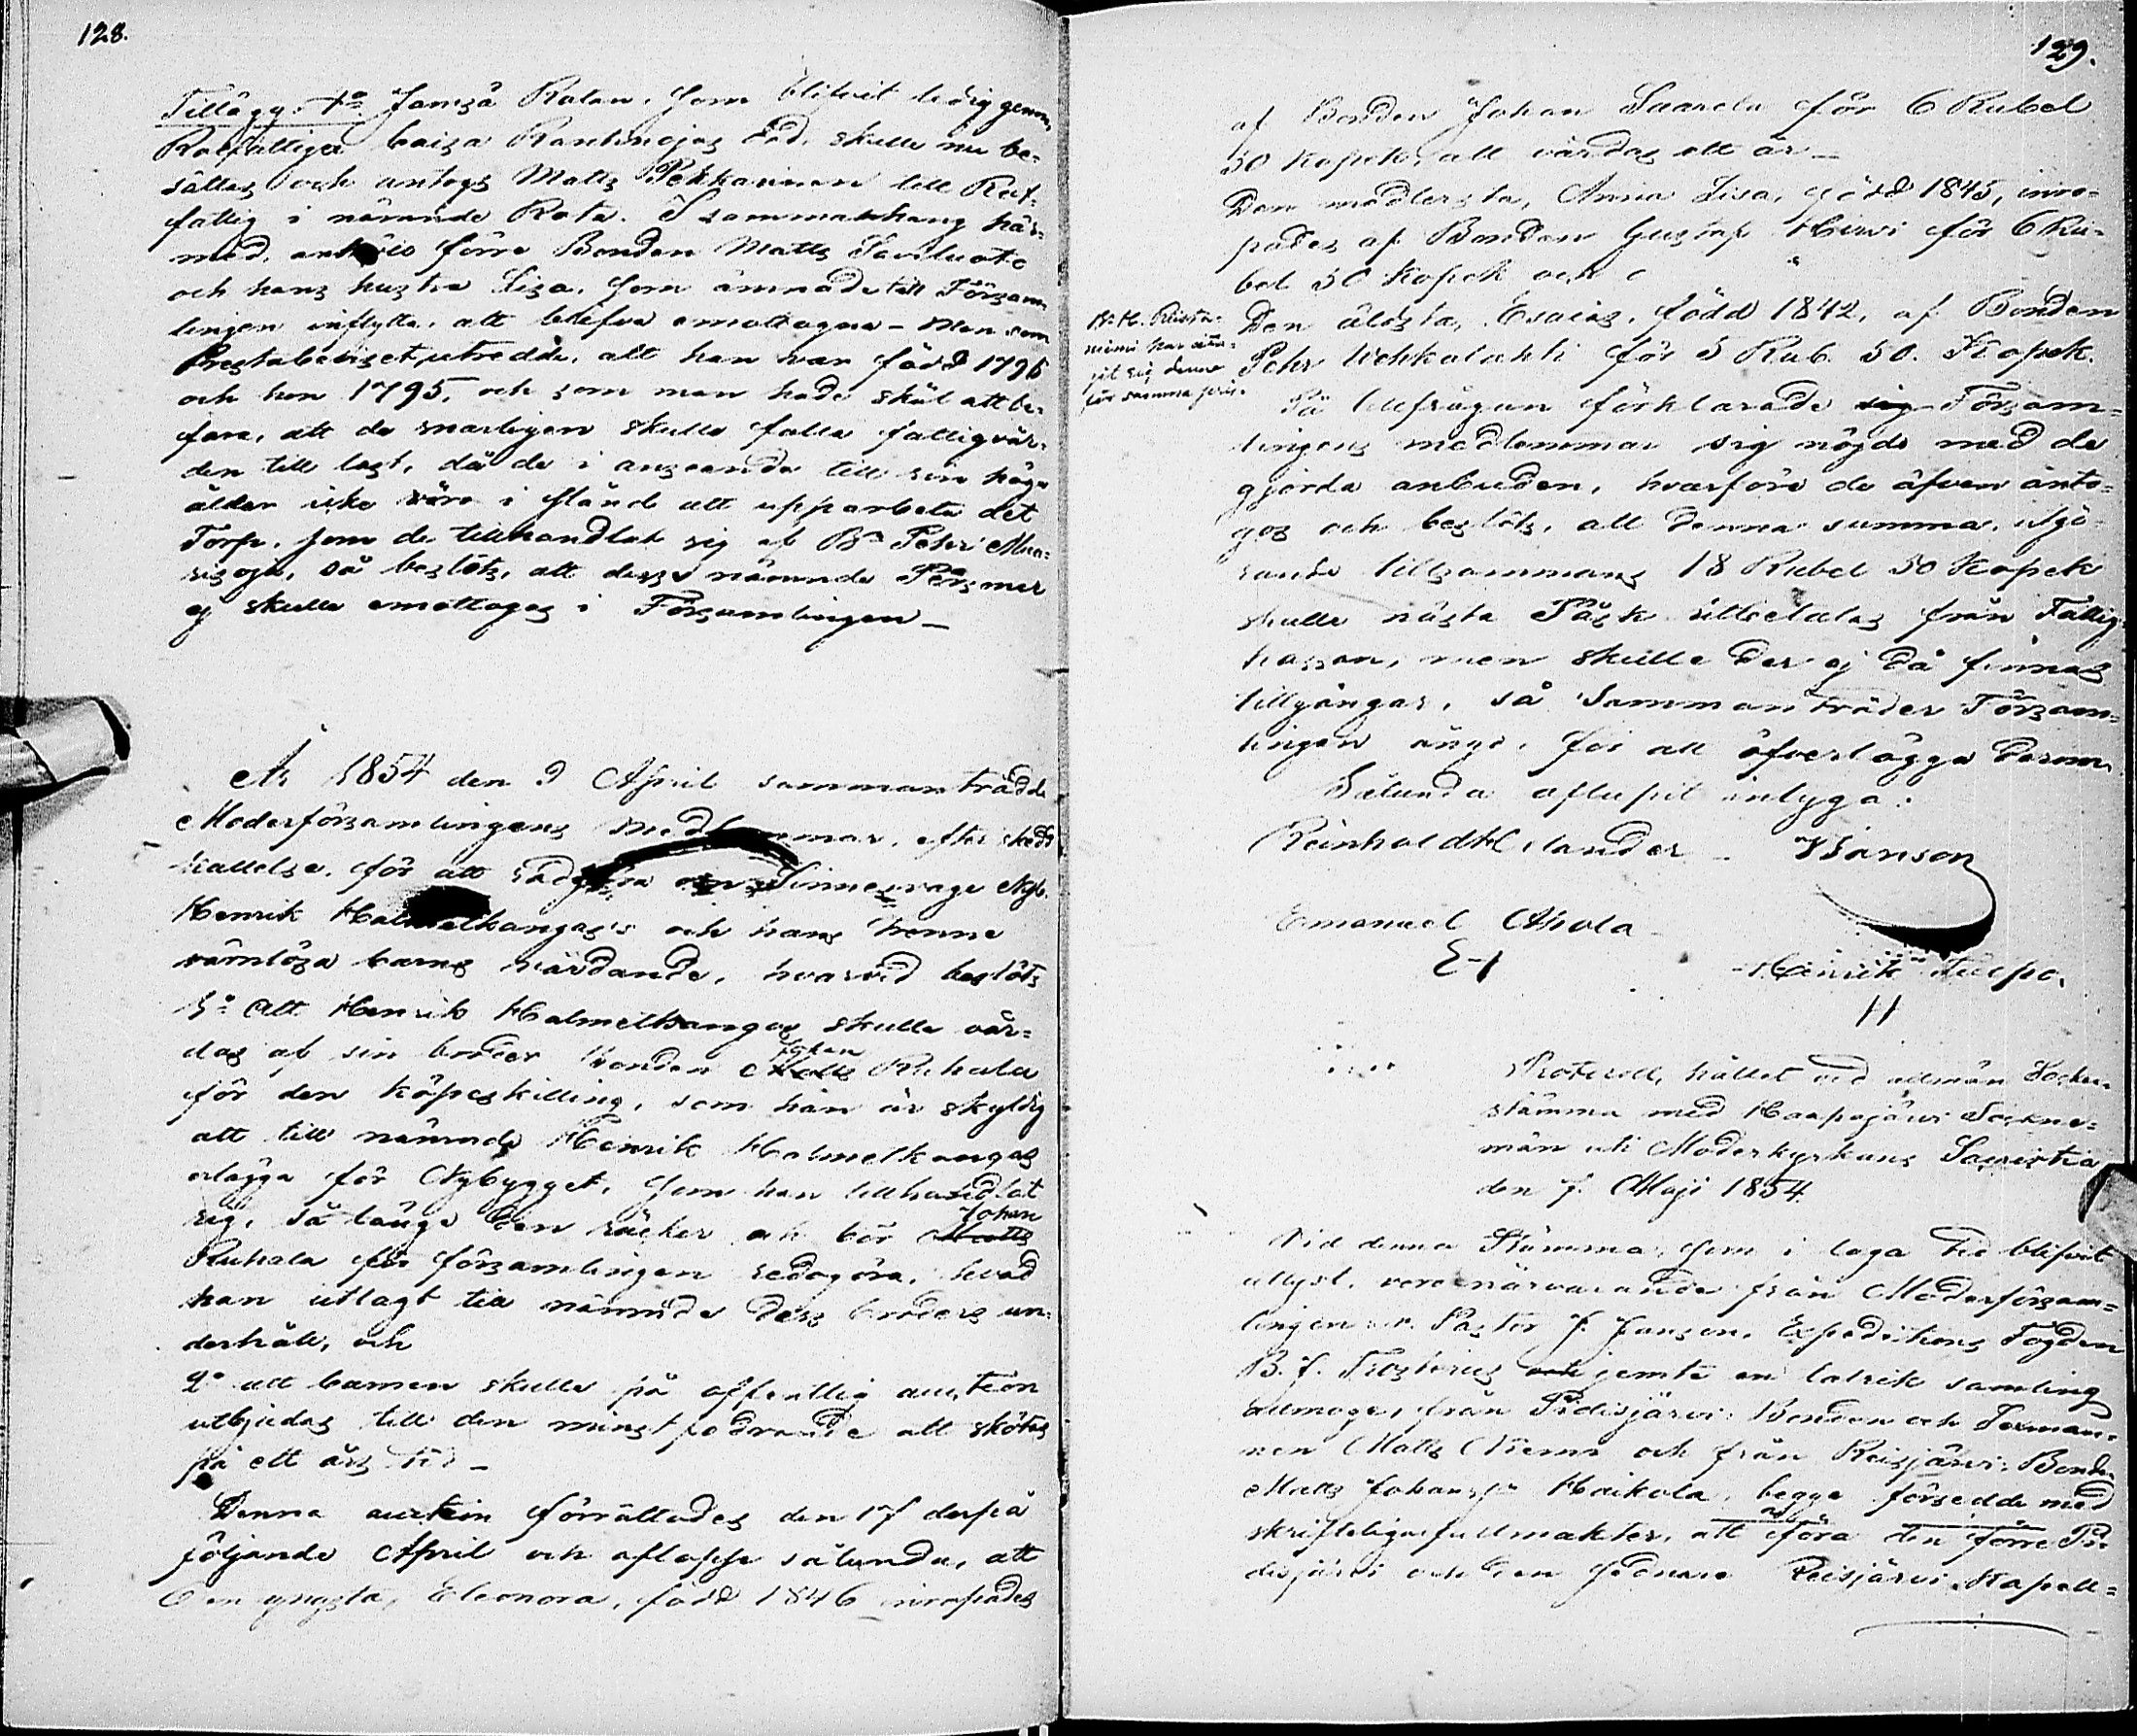 128.
Tillägg. 1o Jamsä Rotan, som blifvit ledig genom
Rotfattiga Caisa Rantinojas död, skulle nu be-
sättas och antogs Matts Pekkarinen till Rot-
fattig i nämnde Rota. I sammanhang här-
med, förre Bonden Matts Saviluoto
och hans hustru Lisa, som ämnade till Försam-
lingen inflytta, att blefve emottagne – Men som
Prestabeviset utredde, att han var född 1796
och hon 1795, och som man hade skäl att be-
fara, att de snarligen skulle falla fattigvår-
den till last, då de i anseende till sin höga
ålder icke vore i stånd att upparbeta det
Torp, som de tillhandlat sig af Bn Pehr
så beslöts, att desse nämnde Personer
ej skulle emottagas i Församlingen –
År 1854 den 9 April sammanträdde
Moderförsamlingens medlemmar, efter skedd
kallelse, för att rådgöra om Sinnessvage Nyb.
Henrik Halmetkangas's och hans trenne
värnlösa barns vårdande, hvarvid beslöts
1o Att Henrik Halmetkangas skulle vår-
das af sin broder Bonden Matts Johan Ruhala
för den köpeskilling, som han är skyldig
att till nämnde Henrik Halmetkangas
erlägga för Nybygget, som han tillhandlat
sig, så länge den räcker och bör Matts Johan
Ruhala för församlingen redogöra, hvad
han utlagt till nämnde dess broders un-
derhåll, och
2o att barnen skulle på offentlig auction
utbjudas till den minst fodrande att skötas
på ett års tid –
Denna auction förrättades den 17 derpå
följande April och aflopp sålunda, att
Den yngsta, Eleonora, född 1846 inropades
129.
af Bonden Johan Saarela för 6 Rubel
50 Kopek, att vårdas ett år –
Den medlersta, Anna Lisa, född 1845, inro-
pades af Bonden Gustaf Hirvi för 6 Ru-
bel 50 Kopek och
Den äldsta, Esaias, född 1842, af Bonden
Pehr Uehkalahti för 5 Rub. 50. Kopek.
N. H. Rista-
niemi har åta-
git sig denne
för samma pris.
På tillfrågan förklarade sig Försam-
lingens medlemmar sig nöjde med de
gjorda anbuden, hvarföre de äfven anto-
gos och beslöts, att denna summa, utgö-
rande tillsammans 18 Rubel 50 Kopek
skulle nästa Påsk utbetalas från Fattig-
kassan, men skulle der ej då finnas
tillgångar, så Sammanträder Försam-
lingen ånyo, för att öfverlägga derom.
Sålunda aflupit intyga:
Reinhold Helander – Janson
Emanuel Ahola
E-1
Henrik
H
Protocoll, hållet vid allmän Socken-
stämma med Haapajärvi Sockne-
män uti Moderkyrkans Sacristia
den 7. Maji 1854.
Vid denna Stämma, som i laga tid blifvit
utlyst, voro närvarande från Moderförsam-
lingen Pastor J. Janson, Expeditions Fogden
B. J. och jemte en talrik samling
allmoge, från Pidisjärvi Bonden och Sexman-
nen Matts Niemi och från Reisjärvi Bonden
Matts Johansson Haikola, begge försedde med
skriftelige fullmakter, att föra den förre Pi-
disjärvi och den sednare Reisjärvi Kapell-